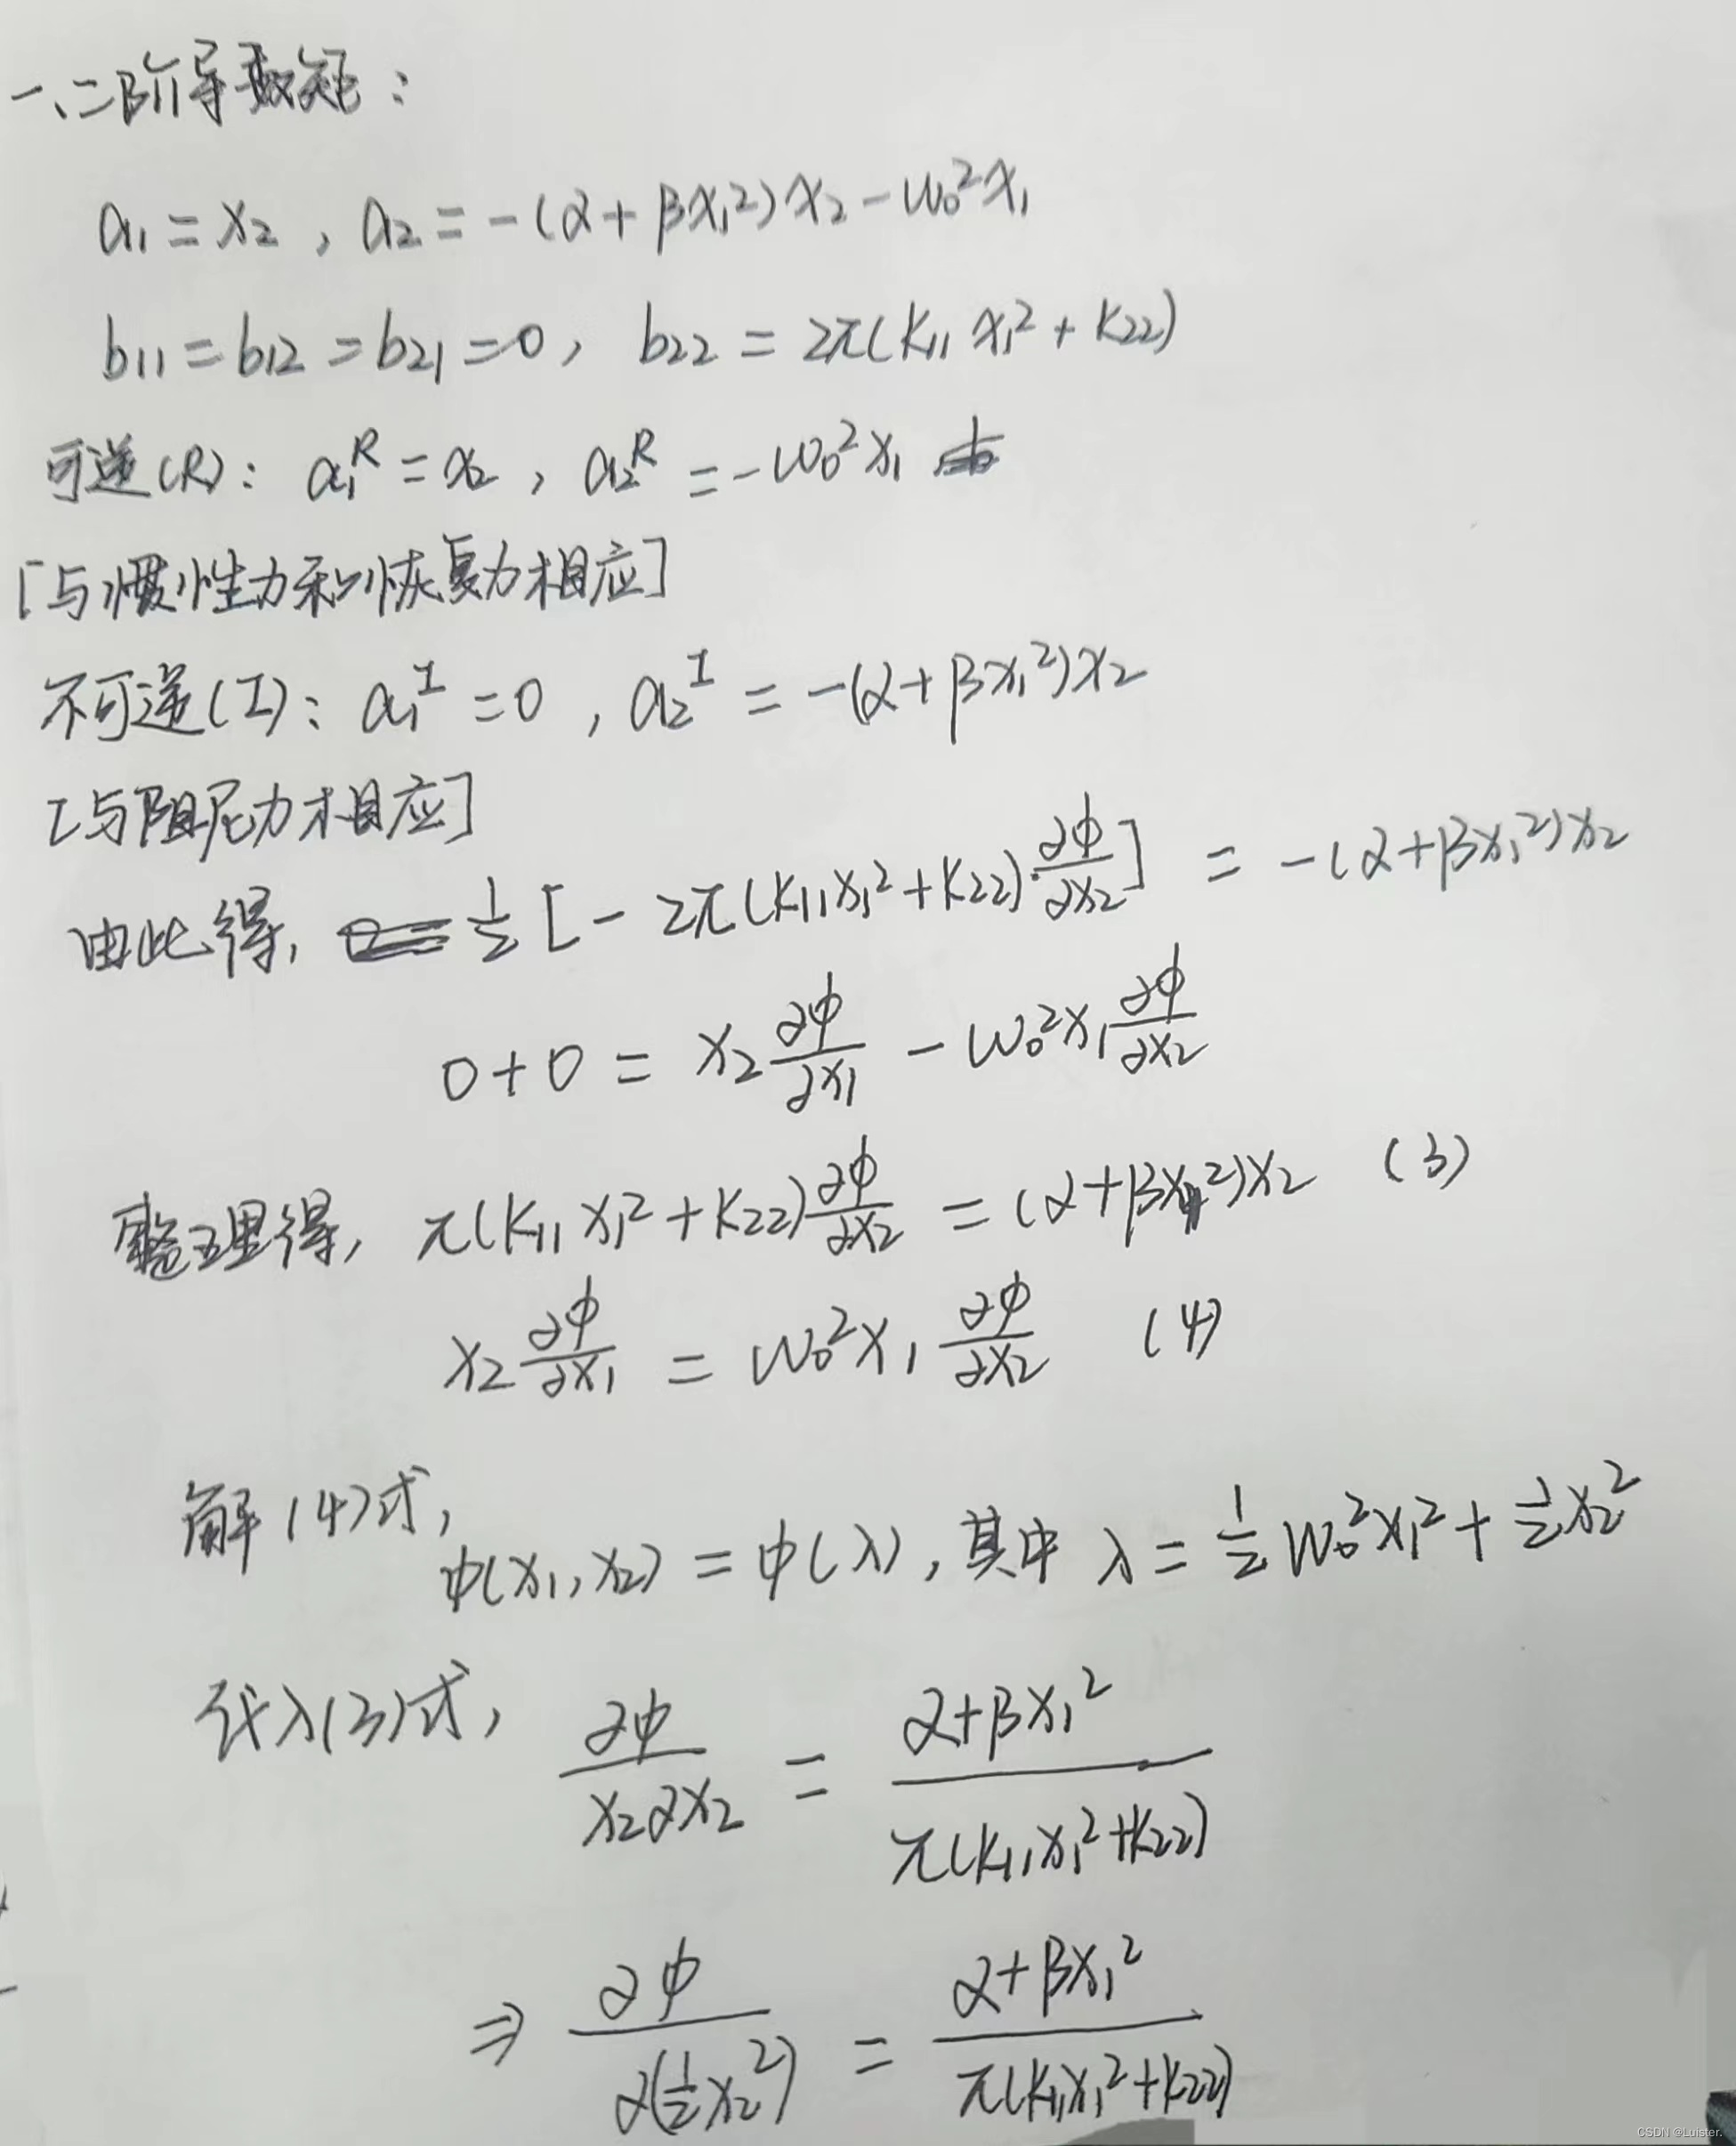 一、二阶导数矩：
a₁ = x₂ , a₂ = -(α + βx₁²)x₂ - ω₀²x₁
b₁₁ = b₁₂ = b₂₁ = 0, b₂₂ = 2π(K₁₁x₁² + K₂₂)
可逆(R)： a₁ᴿ = x₂ , a₂ᴿ = -ω₀²x₁
[与惯性力和恢复力相应]
不可逆(I)： a₁ᴵ = 0 , a₂ᴵ = -(α + βx₁²)x₂
[与阻尼力相应]
由此得, ½[- 2π(K₁₁x₁² + K₂₂)·∂φ/∂x₂] = -(α + βx₁²)x₂
0 + 0 = x₂ ∂φ/∂x₁ - ω₀²x₁ ∂φ/∂x₂
整理得, π(K₁₁x₁² + K₂₂) ∂φ/∂x₂ = (α + βx₁²)x₂ (3)
x₂ ∂φ/∂x₁ = ω₀²x₁ ∂φ/∂x₂ (4)
解(4)式,
φ(x₁, x₂) = φ(λ), 其中 λ = ½ω₀²x₁² + ½x₂²
代入(3)式, ∂φ/x₂∂x₂ = α + βx₁²/π(K₁₁x₁² + K₂₂)
⇒ ∂φ/∂(½x₂²) = α + βx₁²/π(K₁₁x₁² + K₂₂)
CSDN @Luister.